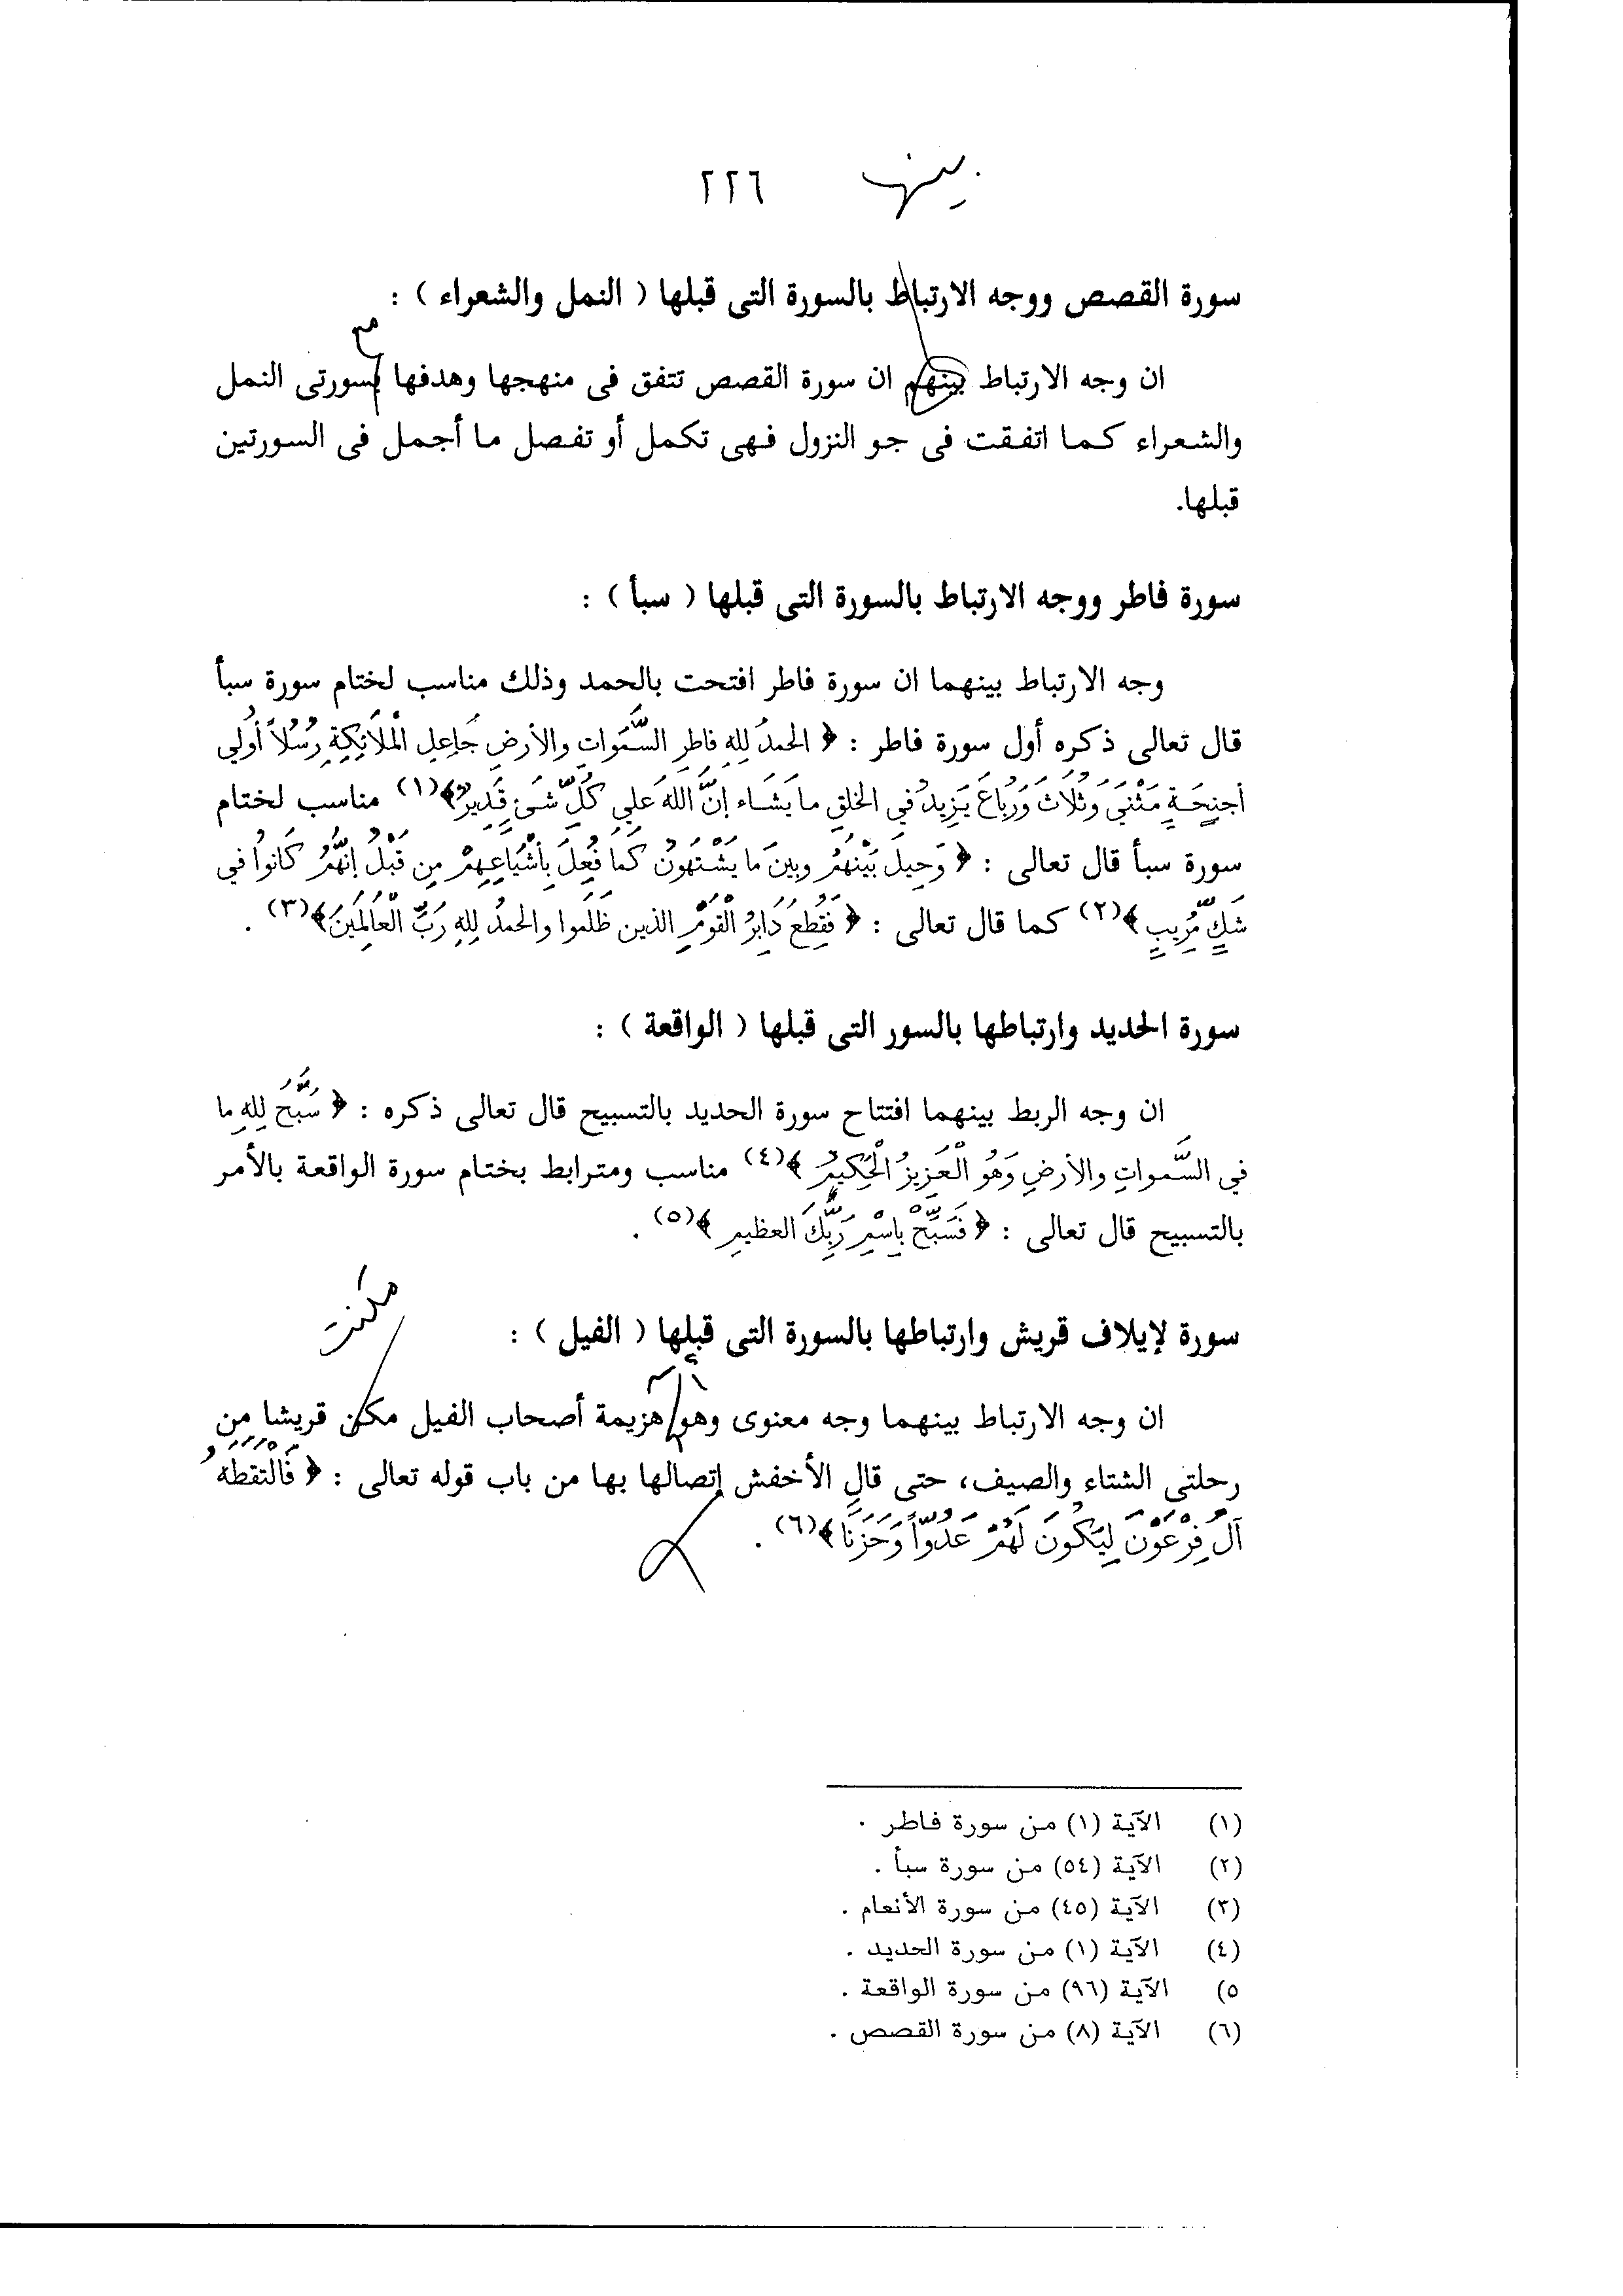 بينها ٢٢٦
سورة القصص ووجه الارتباط بالسورة التى قبلها ( النمل والشعراء ) :
مع
ان وجه الارتباط بينهم ان سورة القصص تتفق فى منهجها وهدفها بسورتى النمل
والشعراء كما اتفقت فى جو النزول فهى تكمل أو تفصل ما أجمل فى السورتين
قبلها.
سورة فاطر ووجه الارتباط بالسورة التى قبلها ( سبأ ) :
وجه الارتباط بينهما ان سورة فاطر افتتحت بالحمد وذلك مناسب لختام سورة سبأ
قال تعالى ذكره أول سورة فاطر : ﴿ الحمدُ لِلهِ فاطِرِ السَّمَواتِ والأرضِ جَاعِلِ الْمَلَائِكِةِ رُسُلاً أُولي
أجنِحَةٍ مَثْنَى وَثُلَاثَ وَرُبَاعَ يَزِيدُ في الخلقِ ما يَشَاء إنَّ اللهَ عَلي كُلِّ شَئٍ قَدِيرٌ﴾(١) مناسب لختام
سورة سبأ قال تعالى : ﴿ وَحِيلَ بَيْنَهُمْ وبينَ ما يَشْتَهُونْ كَمَا فُعِلَ بِأَشْيَاعِهِمْ مِن قَبْلُ إنَّهُمْ كَانُوا في
شَكٍّ مُّرِيبٍ ﴾(٢) كما قال تعالى : ﴿ فَقُطِعَ دَابِرُ الْقَوْمِ الذين ظَلَموا والحمدُ لِلهِ رَبِّ الْعَالَمِينَ﴾(٣) .
سورة الحديد وارتباطها بالسور التى قبلها ( الواقعة ) :
ان وجه الربط بينهما افتتاح سورة الحديد بالتسبيح قال تعالى ذكره : ﴿ سَبَّحَ لِلهِ ما
في السَّموَاتِ والأرضِ وَهُو الْعَزِيزُ الْحَكِيمُ ﴾(٤) مناسب ومترابط بختام سورة الواقعة بالأمر
بالتسبيح قال تعالى : ﴿ فَسَبِّحْ بِاسْمِ رَبِّكَ العظيمِ ﴾(٥) .
مكنت
سورة لإيلاف قريش وارتباطها بالسورة التى قبلها ( الفيل ) :
أن
ان وجه الارتباط بينهما وجه معنوى وهو هزيمة أصحاب الفيل مكن قريشا من
رحلتى الشتاء والصيف، حتى قال الأخفش إتصالها بها من باب قوله تعالى : ﴿ فَالْتَقَطَهُ
آلُ فِرْعَوْنَ لِيَكُونَ لَهُمْ عَدُوّاً وَحَزَنَا﴾(٦) .
(١) الآية (١) من سورة فاطر .
(٢) الآية (٥٤) من سورة سبأ .
(٣) الآية (٤٥) من سورة الأنعام .
(٤) الآية (١) من سورة الحديد .
٥) الآية (٩٦) من سورة الواقعة .
(٦) الآية (٨) من سورة القصص .